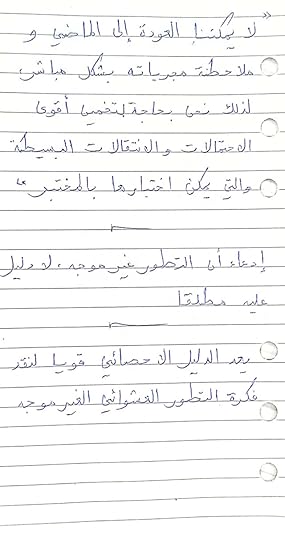 « لا يمكننا العودة إلى الماضي و
ملاحظة مجرياته بشكل مباشر
لذلك نحن بحاجة لتخمين أقوى
الاحتمالات والانتقالات البسيطة
والتي يمكن اختبارها بالمختبر »
إدعاء أن التطور غير موجه، لا دليل
عليه مطلقا
يعد الدليل الاحصائي قويا لنقد
فكرة التطور العشوائي الغير موجه